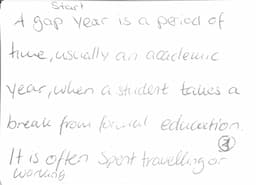 Start
A gap year is a period of
time, usually an academic
year, when a student takes a
break from formal education.
3
It is often spent travelling or
working